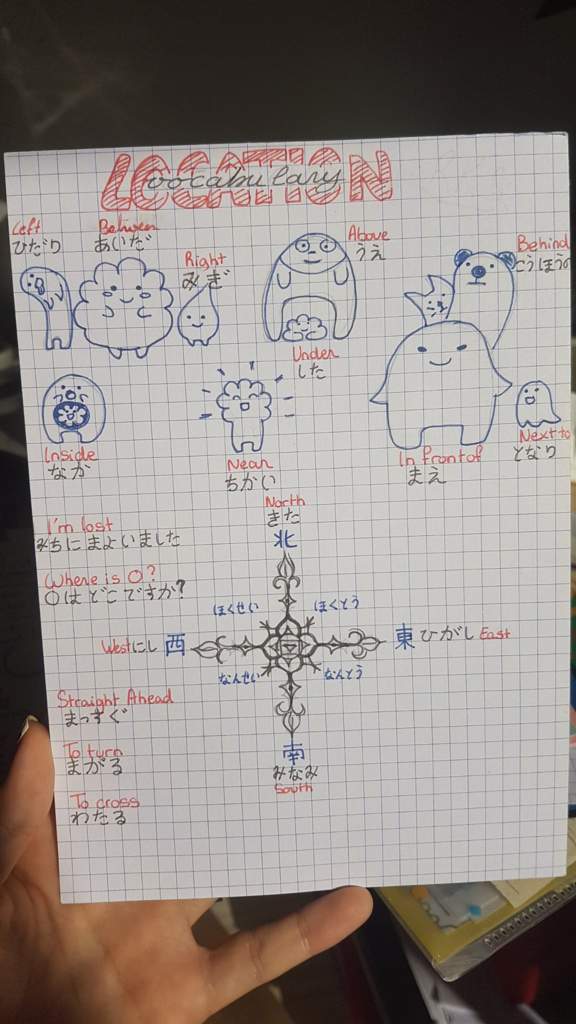 LOCATION
vocabulary
Left
ひだり
Between
あいだ
Right
みぎ
Above
うえ
Behind
こうほうの
Under
した
Inside
なか
Near
ちかい
In front of
まえ
Next to
となり
I'm lost
みちにまよいました
Where is O?
Oはどこですか?
Straight Ahead
まっすぐ
To turn
まがる
To cross
わたる
North
きた
北
ほくせい
ほくとう
West にし 西
東 ひがし East
なんせい
なんとう
南
みなみ
South